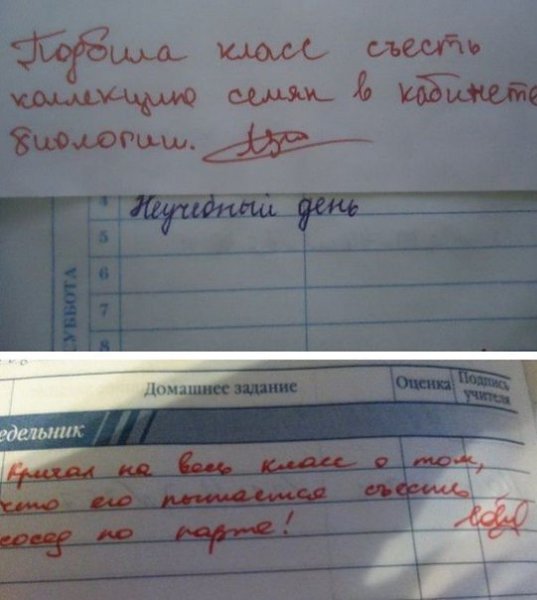 Подбила класс съесть
коллекцию семян в кабинете
биологии.
4 Неучебный день
5
6
7
8
СУББОТА
Домашнее задание Оценка Подпись учителя
едельник
кричал на весь класс о том,
что его пытается съесть
сосед по парте!